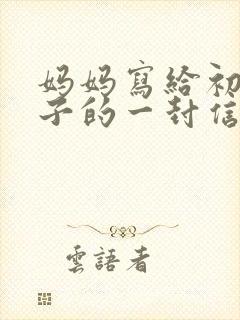 妈妈寫給初
子的一封信
雲語者